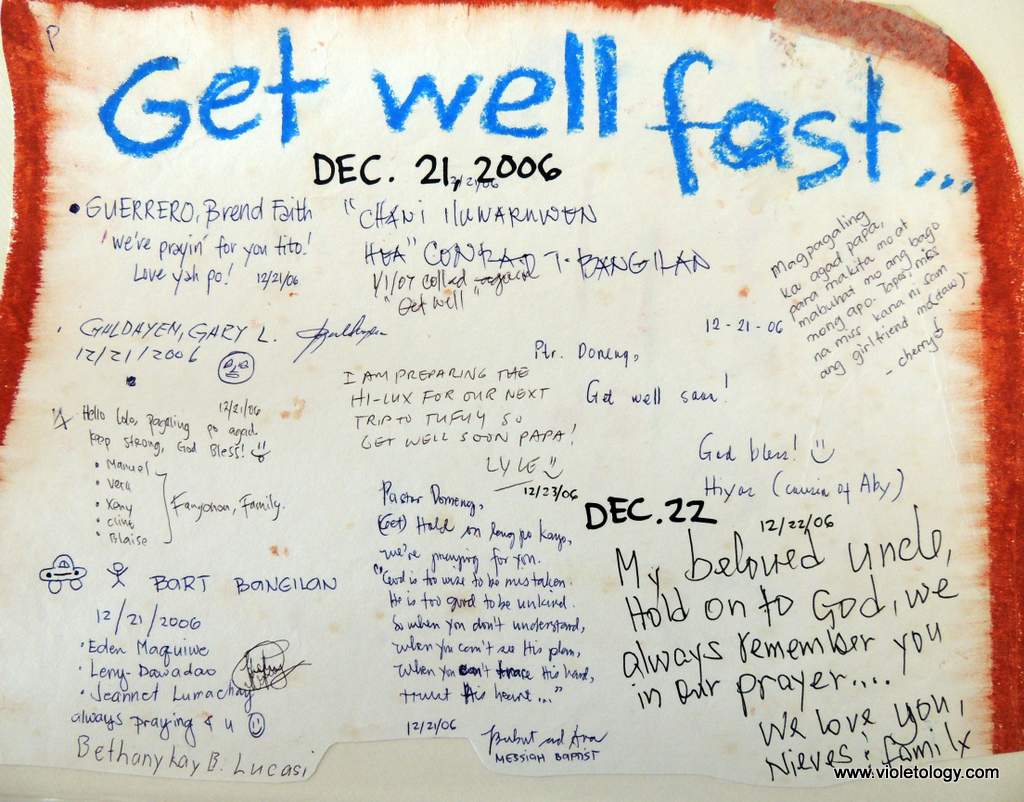 P
Get well fast...
DEC. 21, 2006
12/21/06
• GUERRERO, Brend Faith
we're prayin' for you tito!
Love yah po! 12/21/06
"CHANI
HUA" CONRAD T. BANGILAN
1/1/07 called again
"Get well"
Magpagaling
ka agad papa,
para makita mo at
mabuhat mo ang bago
mong apo. Tapos, miss
na miss kana ni sam
ang girlfriend mo(daw)
- cherry
• GULDAYEN, GARY L.
12/21/2006
12-21-06
Ptr. Domeng,
Get well soon!
God bless!
Hiyas (cousin of Aby)
I AM PREPARING THE
HI-LUX FOR OUR NEXT
TRIP TO TUFUY SO
GET WELL SOON PAPA!
LYLE
12/23/06
12/21/06
Hello Lolo, Pagaling po agad
keep strong, God Bless!
• Manuel
• Vera
• Xony
• Clint
• Blaise
Family.
BART BANGILAN
12/21/2006
• Eden Maquiwe
• Leny Dawadao
• Jeannet Lumachay
always praying 4 u
Bethany kay B. Lucasi
Pastor Domeng,
(Get) Hold on lang po kayo,
we're praying for you.
"God is too wise to be mistaken.
He is too good to be unkind.
So when you don't understand,
when you can't see His plan,
when you can't trace His hand,
trust His heart..."
12/21/06
Bubut and Ara
MESSIAH BAPTIST
DEC. 22
12/22/06
My beloved uncle,
Hold on to God, we
always remember you
in our prayer....
We love you,
Nieves & family
www.violetology.com